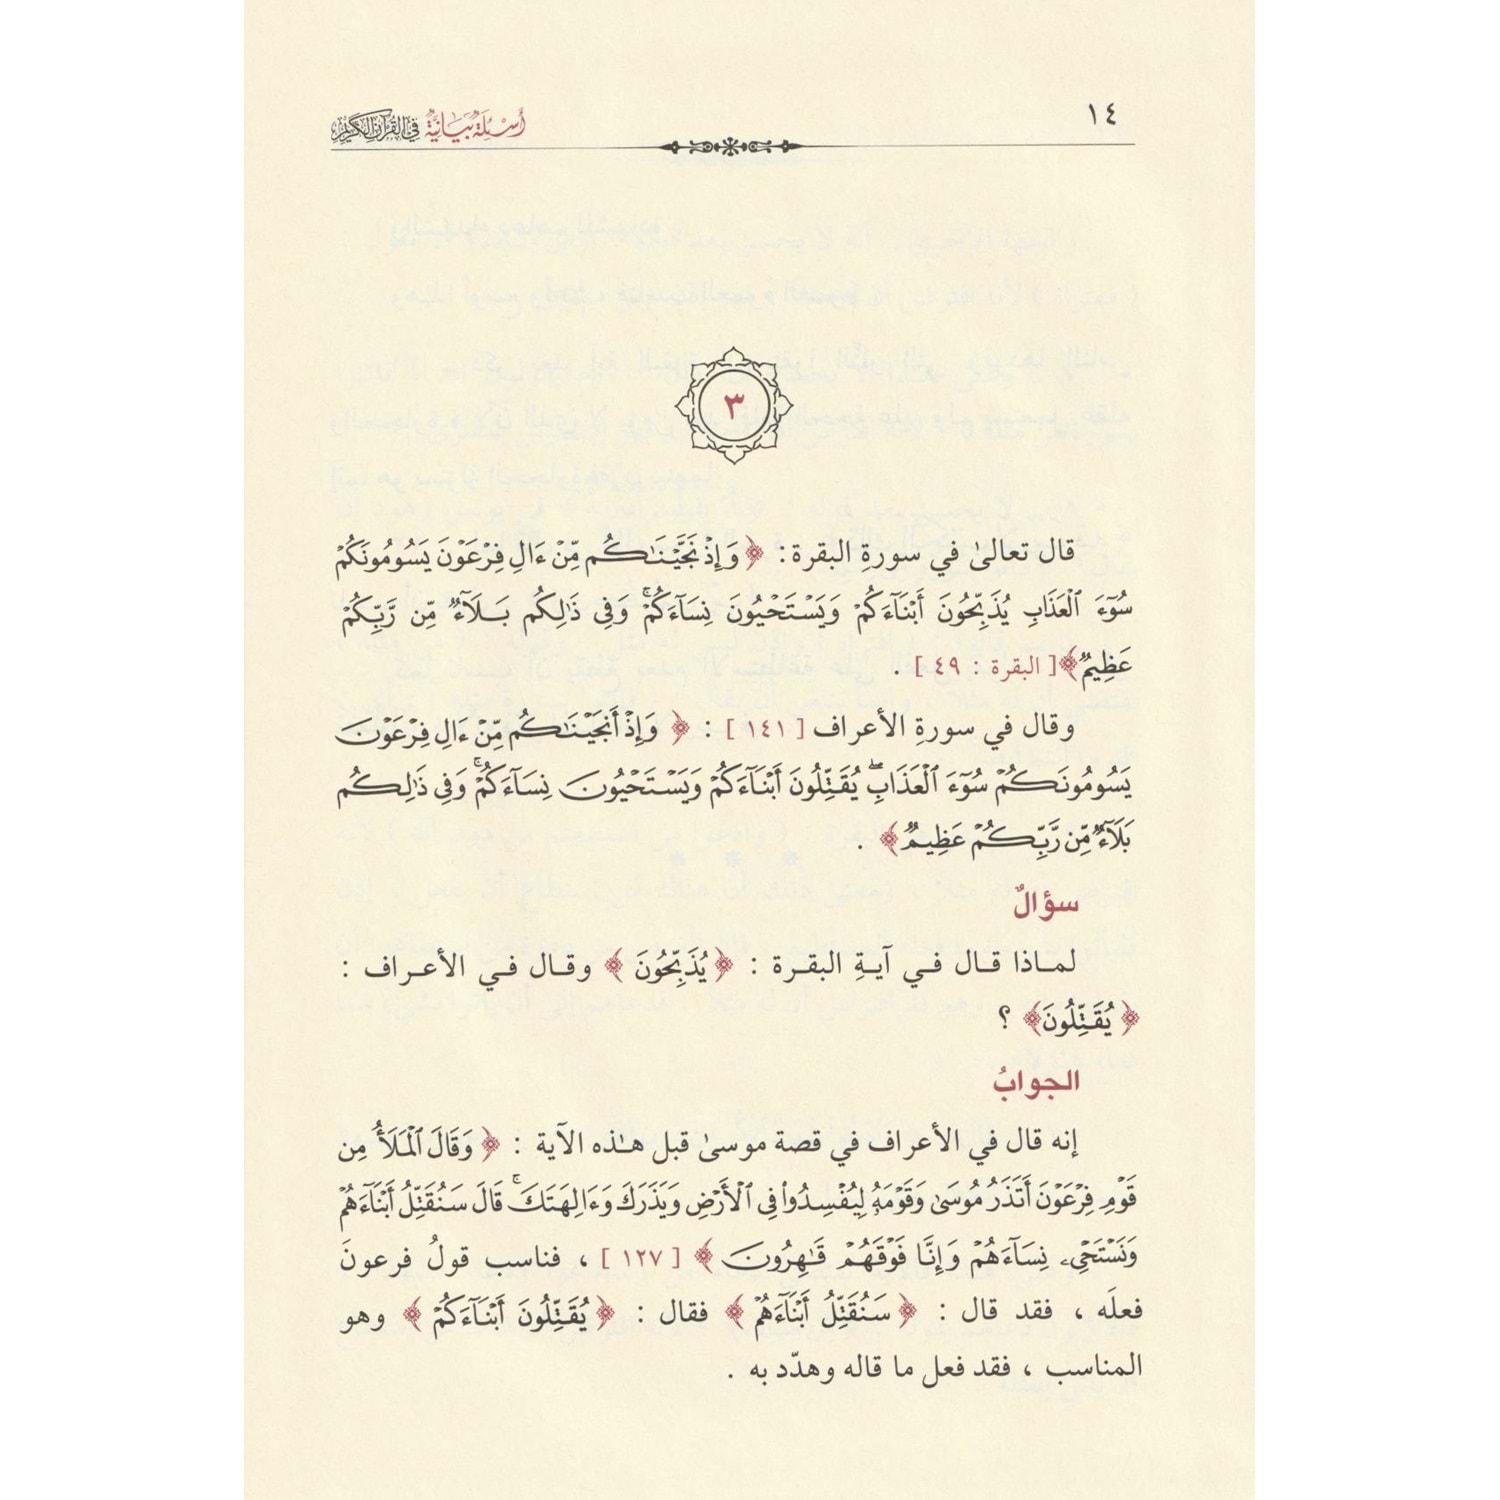 ١٤
أسئلة بيانية في القرآن الكريم
٣
قال تعالىٰ في سورةِ البقرة: ﴿وَإِذْ نَجَّيْنَٰكُم مِّنْ ءَالِ فِرْعَوْنَ يَسُومُونَكُمْ
سُوٓءَ ٱلْعَذَابِ يُذَبِّحُونَ أَبْنَآءَكُمْ وَيَسْتَحْيُونَ نِسَآءَكُمْ ۚ وَفِى ذَٰلِكُم بَلَآءٌ مِّن رَّبِّكُمْ
عَظِيمٌ﴾ [ البقرة : ٤٩ ] .
وقال في سورةِ الأعراف [ ١٤١ ] : ﴿ وَإِذْ أَنجَيْنَٰكُم مِّنْ ءَالِ فِرْعَوْنَ
يَسُومُونَكُمْ سُوٓءَ ٱلْعَذَابِ ۖ يُقَتِّلُونَ أَبْنَآءَكُمْ وَيَسْتَحْيُونَ نِسَآءَكُمْ ۚ وَفِى ذَٰلِكُم
بَلَآءٌ مِّن رَّبِّكُمْ عَظِيمٌ﴾ .
سؤالٌ
لماذا قال في آيةِ البقرة : ﴿يُذَبِّحُونَ ﴾ وقال في الأعراف :
﴿ يُقَتِّلُونَ﴾ ؟
الجوابُ
إنه قال في الأعراف في قصة موسىٰ قبل هـٰذه الآية : ﴿ وَقَالَ ٱلْمَلَأُ مِن
قَوْمِ فِرْعَوْنَ أَتَذَرُ مُوسَىٰ وَقَوْمَهُۥ لِيُفْسِدُوا۟ فِى ٱلْأَرْضِ وَيَذَرَكَ وَءَالِهَتَكَ ۚ قَالَ سَنُقَتِّلُ أَبْنَآءَهُمْ
وَنَسْتَحْىِۦ نِسَآءَهُمْ وَإِنَّا فَوْقَهُمْ قَٰهِرُونَ ﴾ [ ١٢٧ ] ، فناسب قولُ فرعونَ
فعلَه ، فقد قال : ﴿ سَنُقَتِّلُ أَبْنَآءَهُمْ ﴾ فقال : ﴿ يُقَتِّلُونَ أَبْنَآءَكُمْ ﴾ وهو
المناسب ، فقد فعل ما قاله وهدّد به .